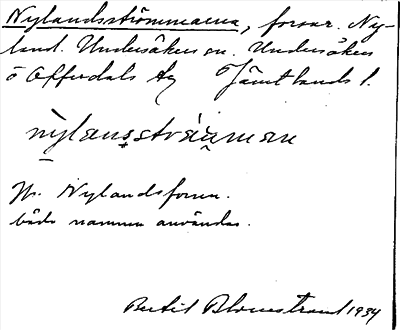 Nylandsströmmarna, forsar. Ny-
land. Undersåkers sn. Undersåkers
o Offerdals tg Jämtlands l.
nỳlansstráu̯man
Jfr. Nylandsforsen.
båda namnen användas.
Bertil Blomstrand 1934